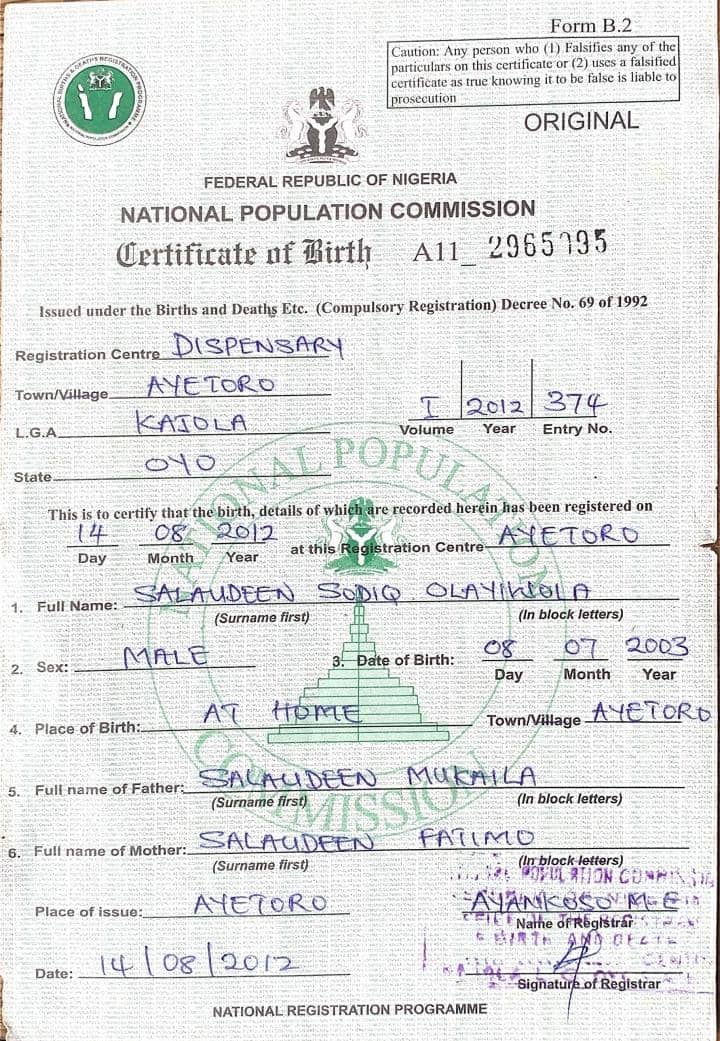 Form B.2
Caution: Any person who (1) Falsifies any of the
particulars on this certificate or (2) uses a falsified
certificate as true knowing it to be false is liable to
prosecution
ORIGINAL
FEDERAL REPUBLIC OF NIGERIA
NATIONAL POPULATION COMMISSION
Certificate of Birth A11_ 2965095
Issued under the Births and Deaths Etc. (Compulsory Registration) Decree No. 69 of 1992
Registration Centre DISPENSARY
Town/Village AYETORO
L.G.A KAJOLA
I 2012 374
Volume Year Entry No.
State OYO
NATIONAL POPULATION COMMISSION
This is to certify that the birth, details of which are recorded herein has been registered on
14 08 2012 at this Registration Centre AYETORO
Day Month Year
1. Full Name: SALAUDEEN SODIQ OLAYIWOLA
(Surname first) (In block letters)
2. Sex: MALE 3. Date of Birth: 08 07 2003
Day Month Year
4. Place of Birth: AT HOME Town/Village AYETORO
5. Full name of Father: SALAUDEEN MUKAILA
(Surname first) (In block letters)
6. Full name of Mother: SALAUDEEN FATIMO
(Surname first) (In block letters)
POPULATION COMMISSION
Place of issue: AYETORO AYANKOSO M.E
Name of Registrar
BIRTH AND
Date: 14/08/2012
Signature of Registrar
NATIONAL REGISTRATION PROGRAMME